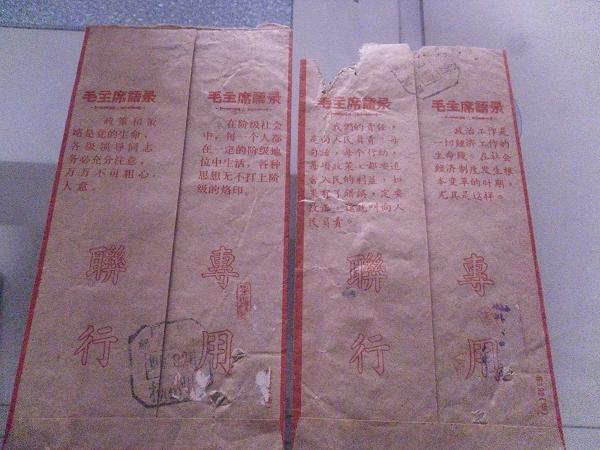 毛主席語录
政策和策
略是党的生命，
各级领导同志
务必充分注意，
万万不可粗心
大意。
毛主席語录
在阶级社会
中，每一个人都
在一定的阶级地
位中生活，各种
思想无不打上阶
级的烙印。
聯 專
行 用
毛主席語录
我們的責任，
是向人民負責。每
句話，每个行动，
每項政策，都要适
合人民的利益，如
果有了錯誤，定要
改正，这就叫向人
民負責。
毛主席語录
政治工作是
一切經济工作的
生命綫。在社会
經济制度发生根
本变革的时期，
尤其是这样。
聯 專
行 用